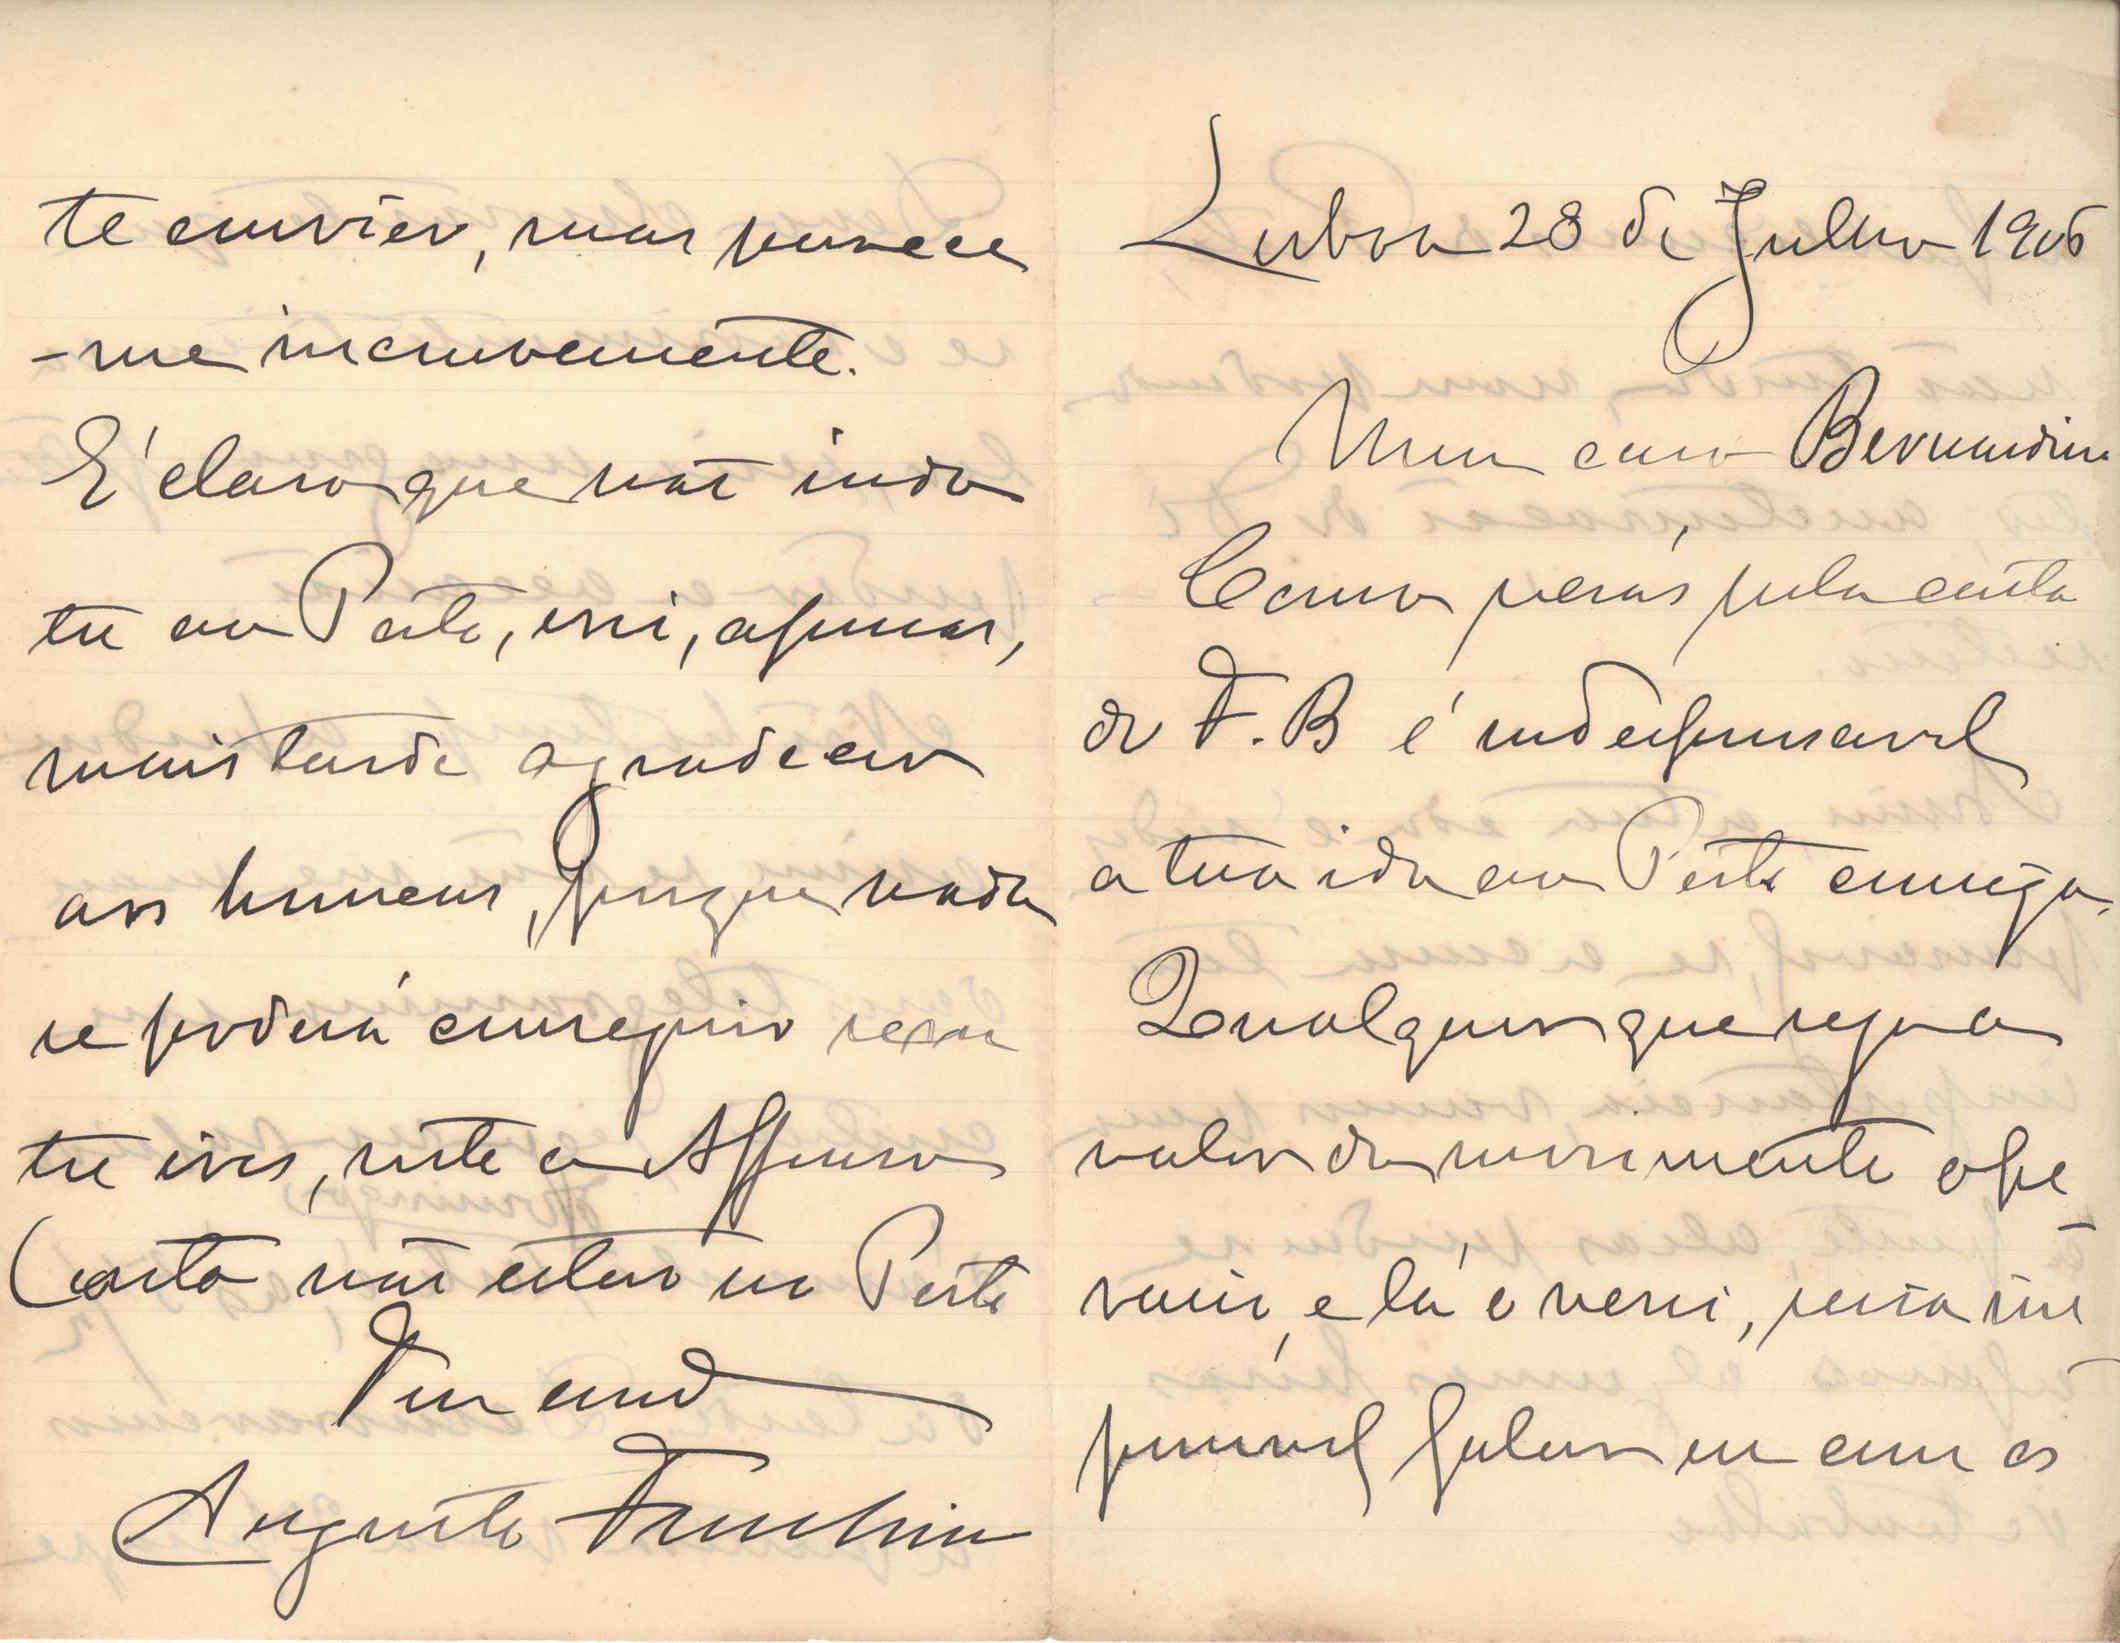 Lisboa 28 de Julho 1906
Meu caro Bernardino
Como verás pela carta
do F. B é indespensavel
a tua ida ao Porto comigo.
Qualquer que seja o
valor do movimento ope
rario, e lá o verei, seria im
possivel falar eu com os
te convier, mas parece
-me inconveniente.
É claro que não indo
tu ao Porto, irei, apenas,
mais tarde agradecer
aos homens, porque nada
se poderá conseguir sem
tu ires, visto o Affonso
Costa não estar no Porto
Teu am.º
Augusto